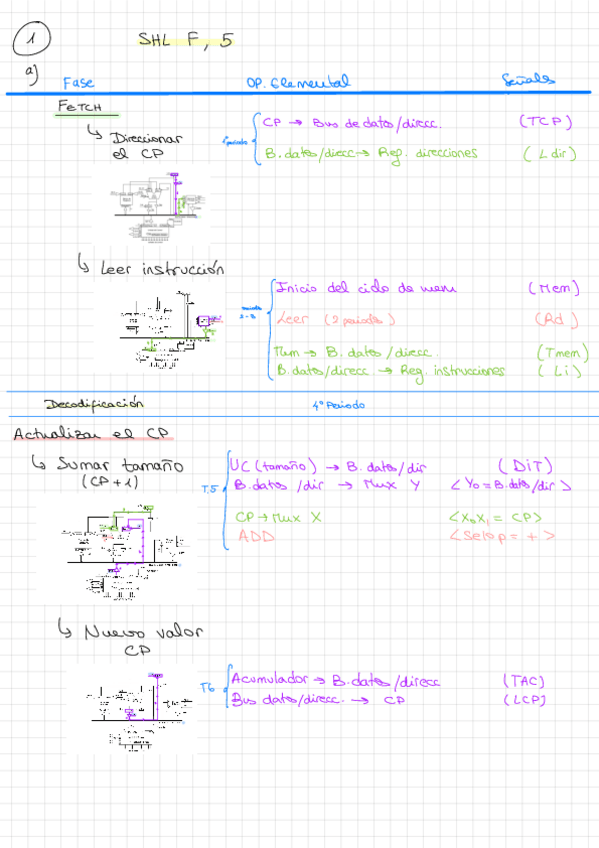 1
SHL F, 5
a)
Fase OP. Elemental Señales
FETCH
↳ Direccionar el CP
1º periodo
CP → Bus de datos/direcc. (TCP)
B.datos/direcc → Reg. direcciones (Ldir)
↳ Leer instrucción
Inicio del ciclo de mem (Mem)
Leer (2 periodos) (Ad)
→ B. datos / direcc. (Tmem)
B.datos/direcc. → Reg. instrucciones (Li)
Decodificación 4º Periodo
Actualizar el CP
↳ Sumar tamaño
(CP+1)
T.5
UC (tamaño) → B. datos/dir (DIT)
B.datos /dir → Mux Y <Y0 = B.datos/dir>
CP → Mux X <X0X1 = CP>
ADD <Selop = +>
↳ Nuevo valor
CP
T6
Acumulador → B. datos/direcc (TAC)
Bus datos/direcc. → CP (LCP)